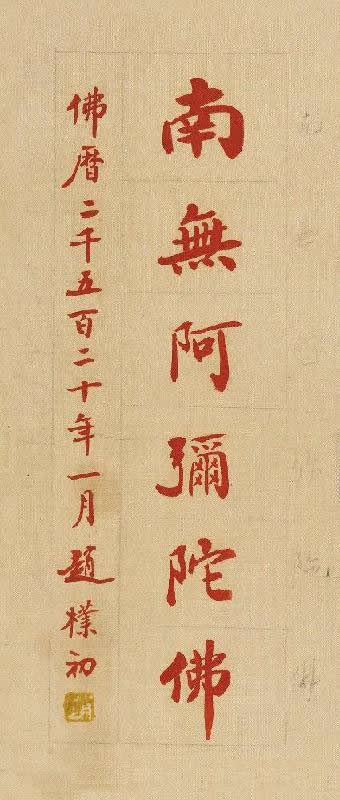 南無阿彌陀佛
佛曆二千五百二十年一月趙樸初